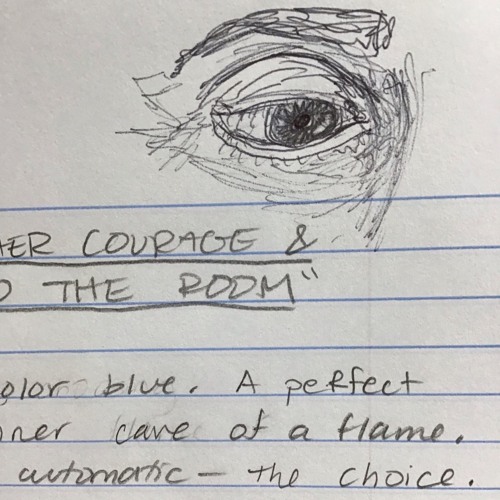 HER COURAGE &
O THE ROOM"
olor blue. A perfect
ner cave of a flame.
automatic — the choice.